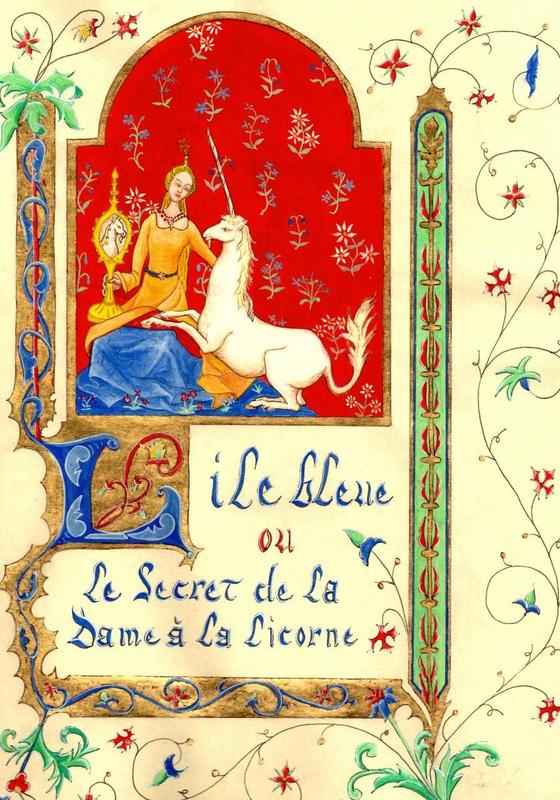 L île bleue
ou
Le Secret de La
Dame à La Licorne